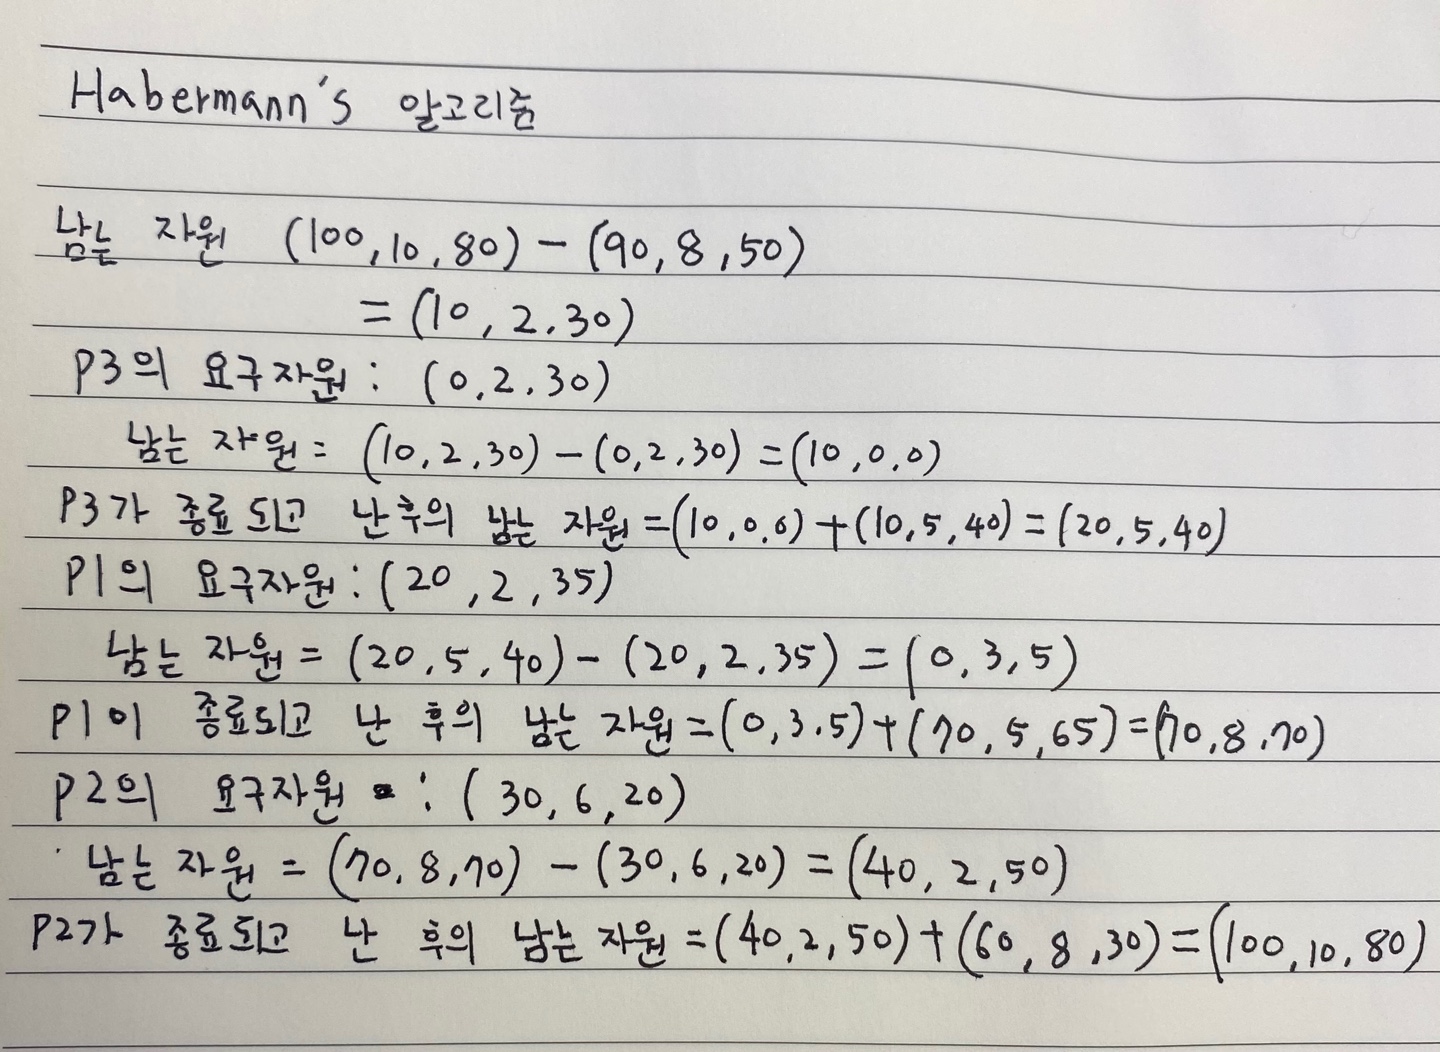 Habermann's 알고리즘
남는 자원 (100,10,80) - (90,8,50)
= (10,2,30)
P3의 요구자원: (0,2,30)
남는 자원 = (10,2,30) - (0,2,30) = (10,0,0)
P3가 종료되고 난 후의 남는 자원 = (10,0,0) + (10,5,40) = (20,5,40)
P1의 요구자원: (20,2,35)
남는 자원 = (20,5,40) - (20,2,35) = (0,3,5)
P1이 종료되고 난 후의 남는 자원 = (0,3,5) + (70,5,65) = (70,8,70)
P2의 요구자원 : (30,6,20)
남는 자원 = (70,8,70) - (30,6,20) = (40,2,50)
P2가 종료되고 난 후의 남는 자원 = (40,2,50) + (60,8,30) = (100,10,80)